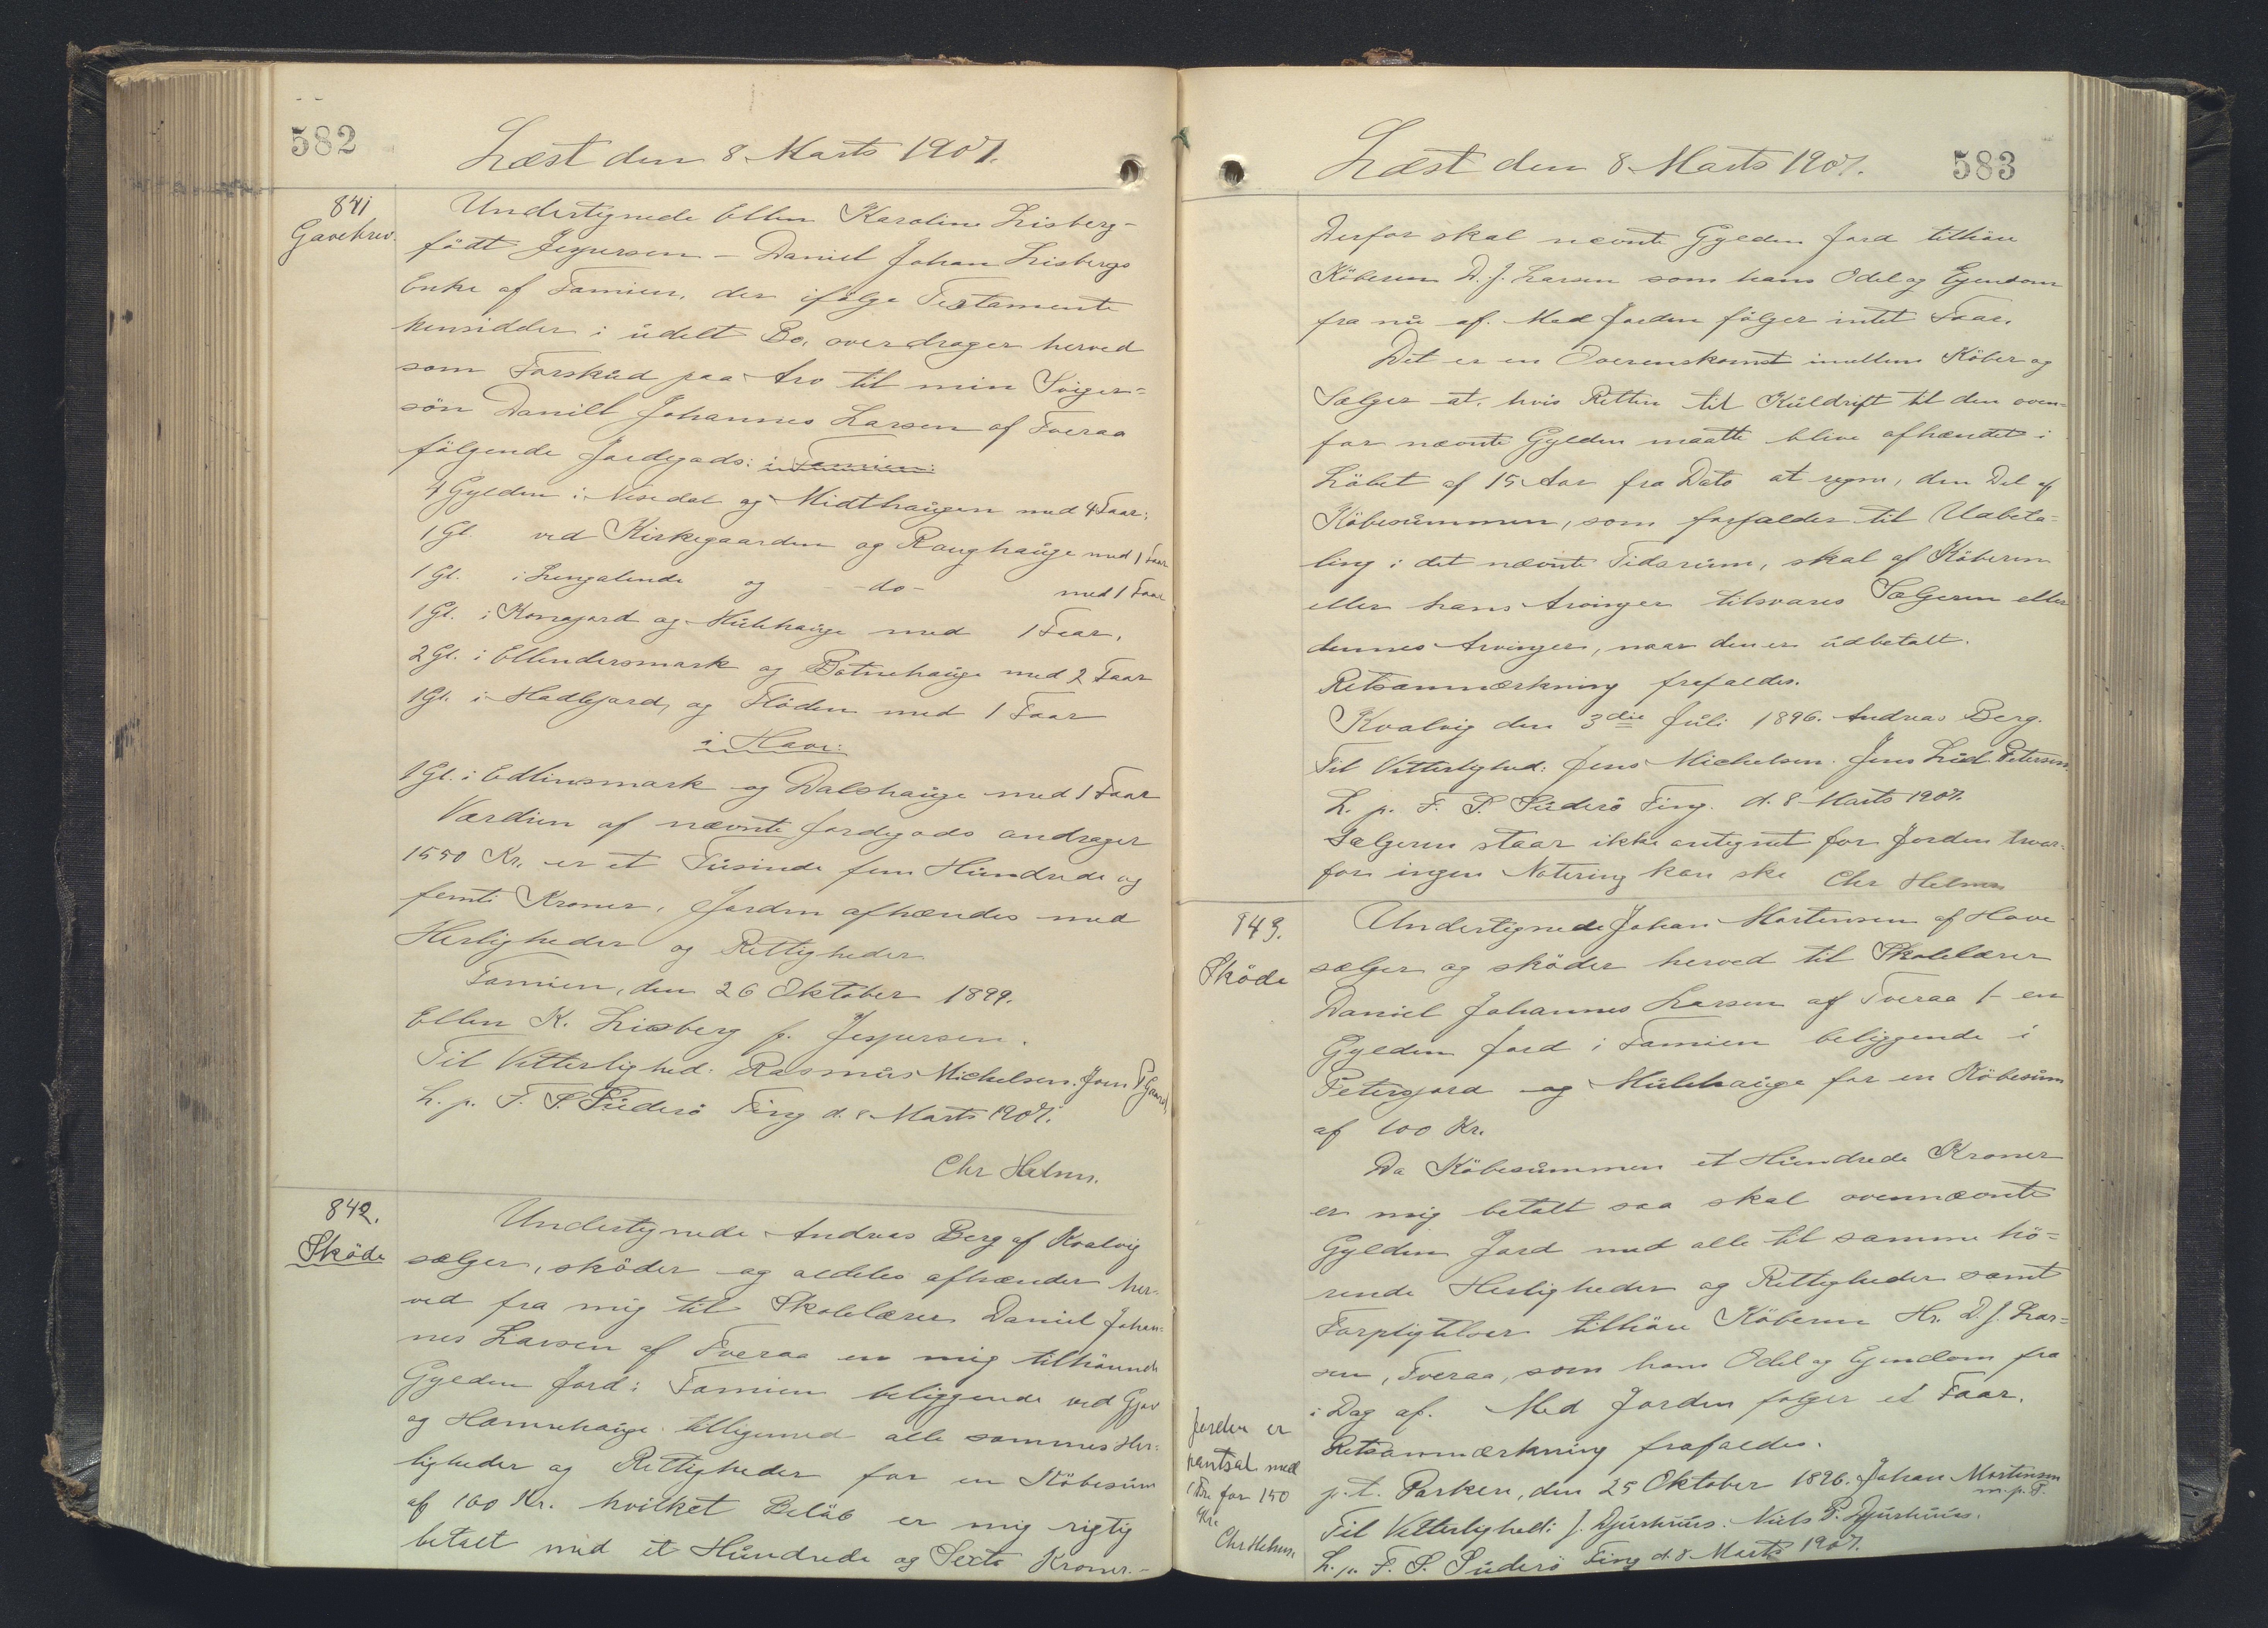 582
Læst den 8 Marts 1907.
841
Gavebrev.
Undertegnede Ellen Karoline Lisberg-
född Jespersen - Daniel Johan Lisbergs
Enke af Famien, der ifölge Testamente
hensidder i udelt Bo, overdrager herved
som Forskud paa Arv til min Sviger=
sön Daniel Johannes Larsen af Tveraa
fölgende Jordegods: i Famien:
4 Gylden i Nesedal og Midthaugen med 4 Faar;
1 Gl. ved Kirkegaarden og Roughauge med 1 Faar
1 Gl. i Lengalende og -do- med 1 Faar
1 Gl. i Konagard og Hulehauge med 1 Faar,
2 Gl. i Ellendersmark og Botnehauge med 2 Faar
1 Gl. i Hadlgjard, og Flöden med 1 Faar
i Hove:
1 Gl. i Edlinsmark og Dalshauge med 1 Faar
Værdien af nævnte Jordegods andrager
1550 Kr. er et Tusinde fem Hundrede og
femti Kroner. Jorden afhændes med
Herligheder og Rettigheder
Famien, den 26 Oktober 1899.
Ellen K. Lisberg f. Jespersen.
Til Vitterlighed: Rasmus Michelsen. Joen P Gaard,
L. p. F. S. Suderö Ting d. 8 Marts 1907.
Chr Helms.
842.
Sköde
Undertegnede Andreas Berg af Kvalvig
sælger, sköder og aldeles afhænder her=
ved fra mig til Skolelærer Daniel Johan=
nes Larsen af Tveraa en mig tilhörende
Gylden Jord i Famien beliggende ved Gjov
og Hamrehauge tilligemed alle sammes Her=
ligheder og Rettigheder for en Köbesum
af 160 Kr. hvilket Belöb er mig rigtig
betalt med et Hundrede og Sexti Kroner.-
Læst den 8 Marts 1907.
583
Derfor skal nævnte Gylden Jord tilhöre
Köberen D. J. Larsen som hans Odel og Ejendom
fra nu af. Med Jorden fölger intet Faar.
Det er en Overenskomst imellem Köber og
Sælger at, hvis Retten til Kuldrift til den oven=
for nævnte Gylden maatte blive afhændet i
Löbet af 15 Aar fra Dato at regne, den Del af
Köbesummen, som forfalder til Udbeta=
ling i det nævnte Tidsrum, skal af Köberen
eller hans Arvinger tilsvares Sælgeren eller
dennes Arvinger, naar den er udbetalt.
Retsanmærkning frafaldes.
Kvalvig den 3die Juli 1896. Andreas Berg.
Til Vitterlighed: Jens Michelsen. Jens Lud. Petersen.
L. p. F. S. Suderö Ting. d. 8 Marts 1907.
Sælgeren staar ikke antegnet for Jorden hvor=
for ingen Notering kan ske Chr Helms
843.
Sköde
Undertegnede Johan Mortensen af Hove
sælger og sköder herved til Skolelærer
Daniel Johannes Larsen af Tveraa 1- en
Gylden Jord i Famien beliggende i
Petersjord og Hulehauge for en Köbesum
af 100 Kr.
Da Köbesummen et Hundrede Kroner
er mig betalt saa skal ovennævnte
Gylden Jord med alle til samme hö=
rende Herligheder og Rettigheder samt
Forpligtelser tilhöre Köberen Hr. D. J. Lar=
sen, Tveraa, som hans Odel og Ejendom fra
i Dag af. Med Jorden fölger et Faar.
Retsanmærkning frafaldes.
p.t. Parken, den 25 Oktober 1896. Johan Mortensen
m.p.P.
Til Vitterlighed: J. Djurhuus. Niels P. Djurhuus.
L. p. F. S. Suderö Ting d. 8 Marts 1907.
Jorden er
pantsat med
for 150
Kr.
Chr Helms.